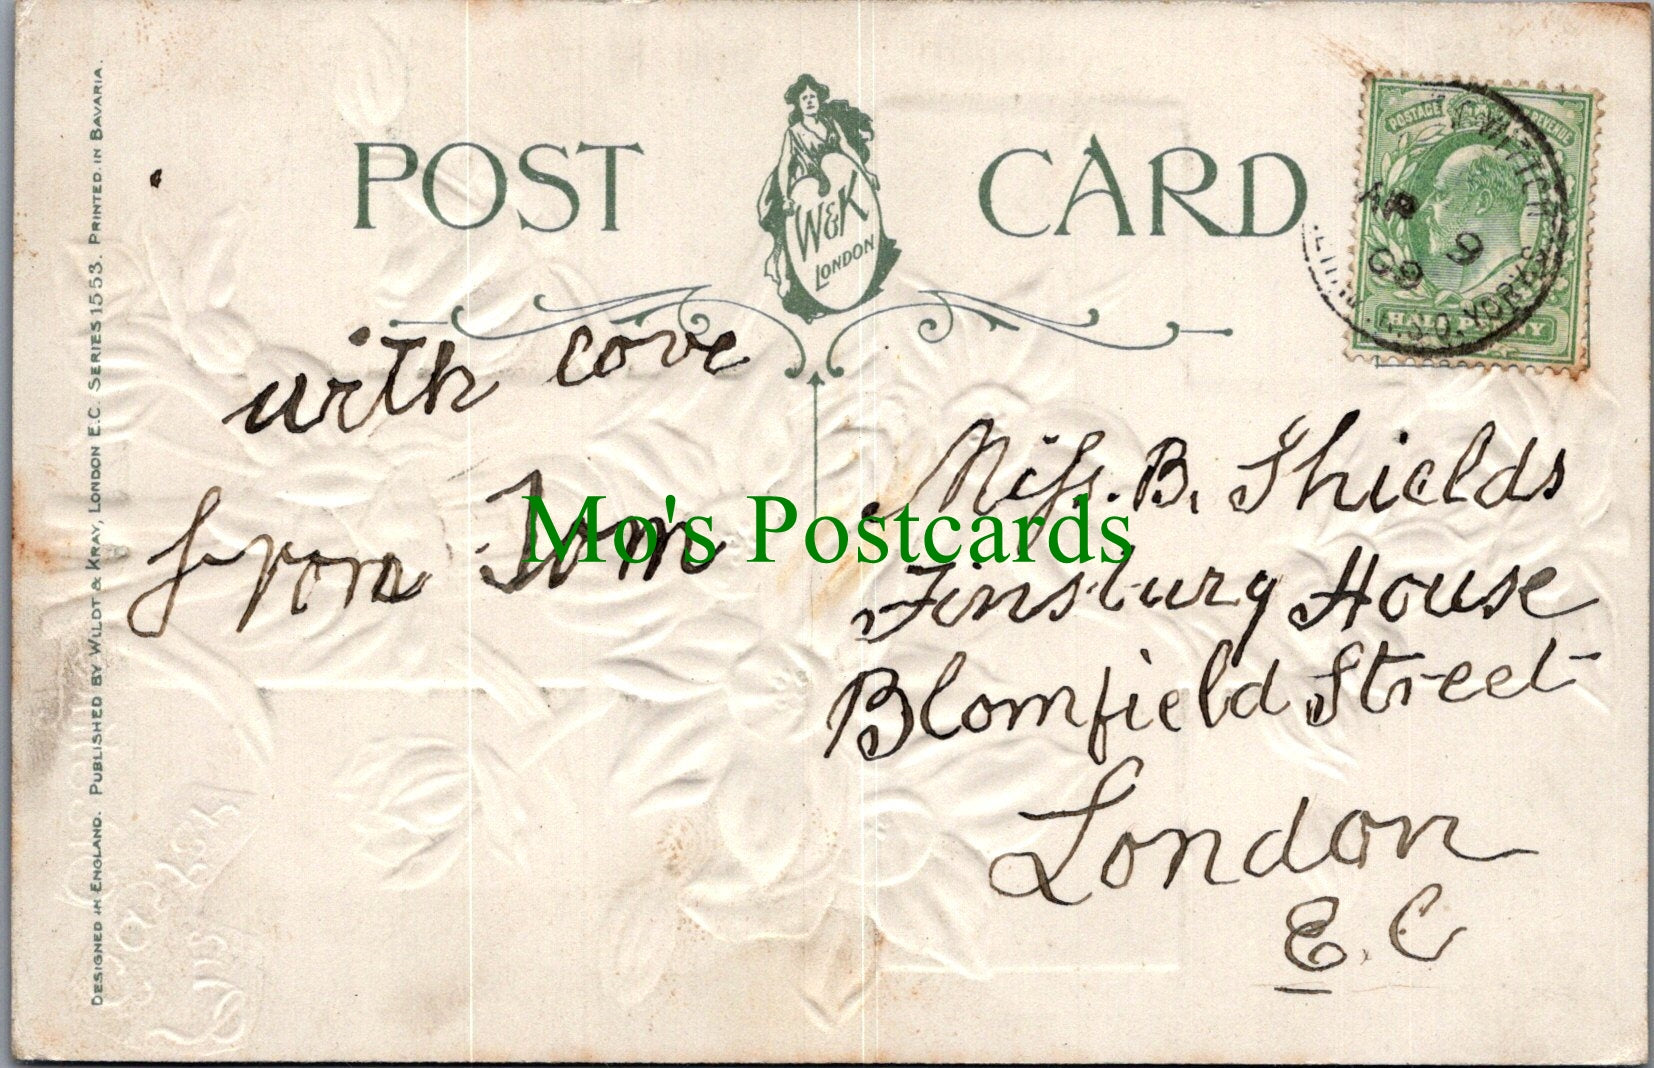 POST CARD
W&K
LONDON
POSTAGE REVENUE
AP 9
09
S.O. YORKS
HALF PENNY
with love
from Tom
Miss. B. Shields
Finsbury House
Blomfield Street
London
E.C
Mo's Postcards
DESIGNED IN ENGLAND. PUBLISHED BY WILDT & KRAY, LONDON E.C. SERIES 1553. PRINTED IN BAVARIA.